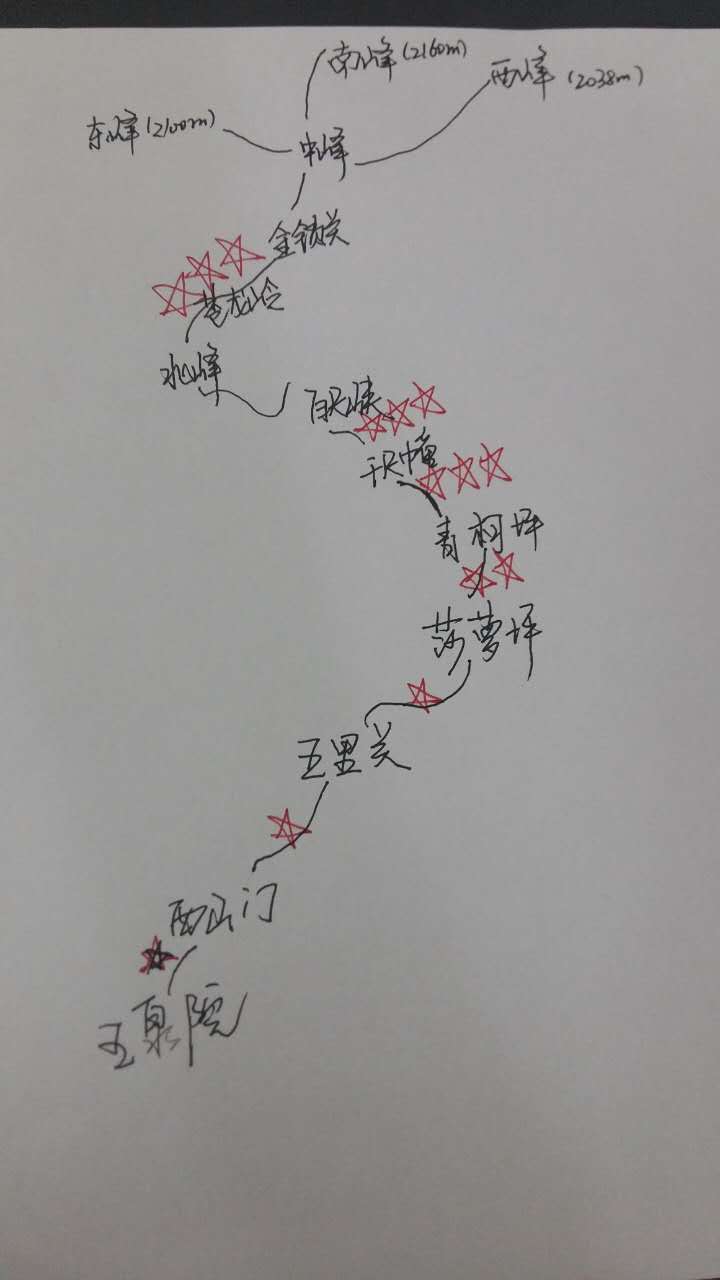 南峰(2160m)
西峰(2038m)
东峰(2100m)
中峰
金锁关
苍龙岭
北峰
百尺峡
千尺幢
青柯坪
莎萝坪
五里关
西山门
玉泉院